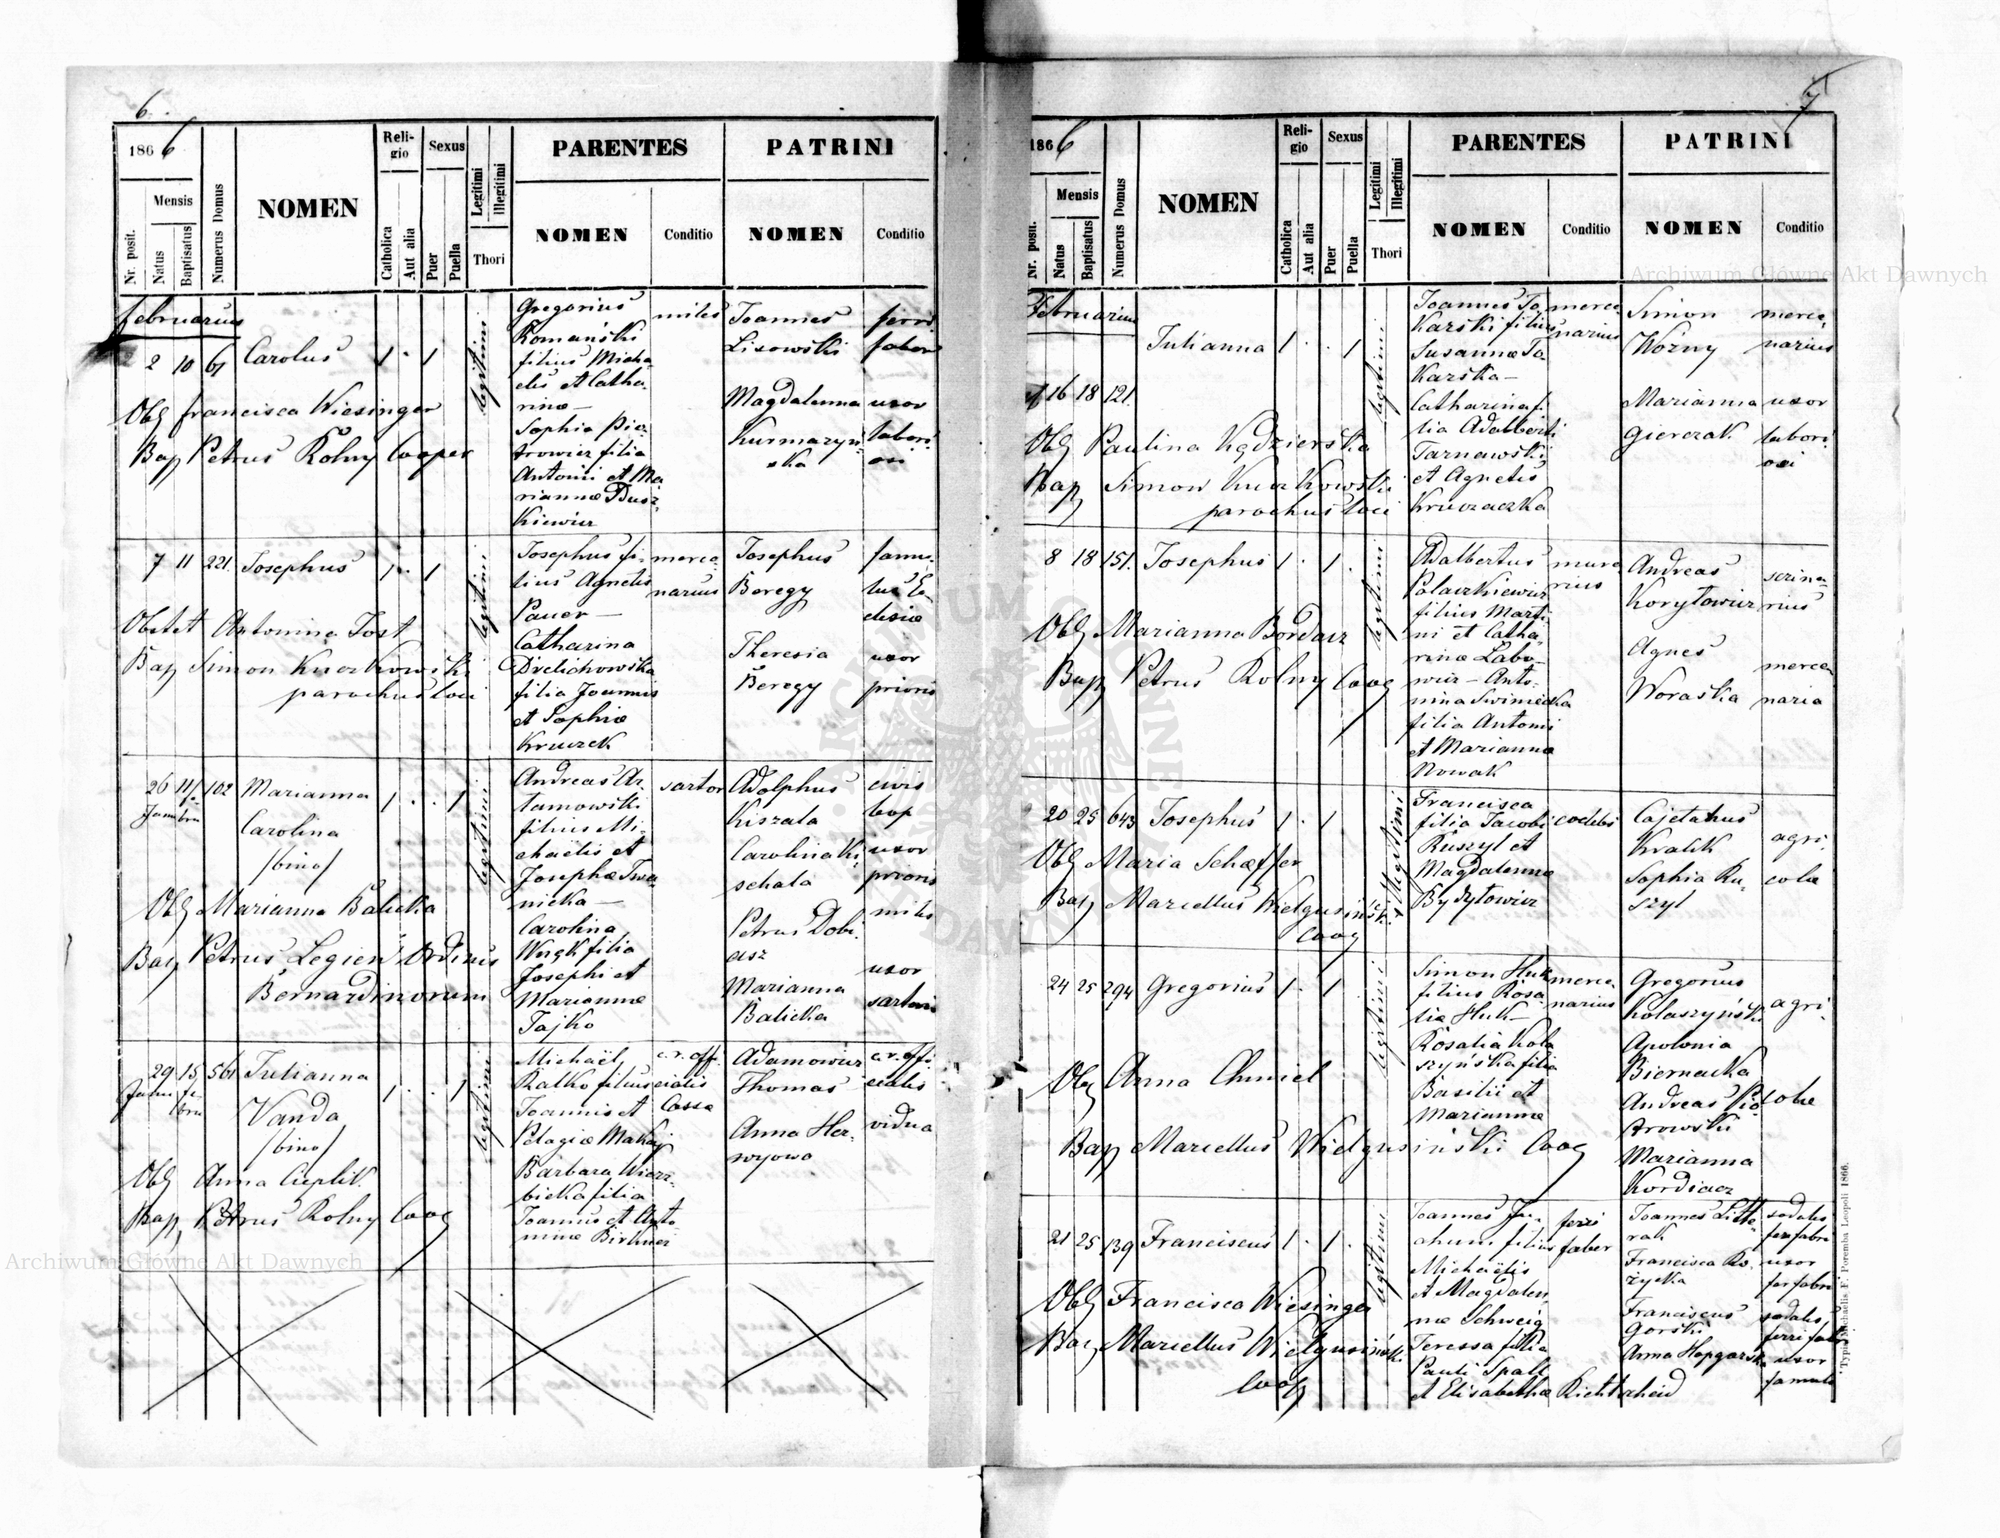 6
1866
Nr. posit.
Mensis
Natus
Baptisatus
Numerus Domus
NOMEN
Religio
Catholica
Aut alia
Sexus
Puer
Puella
Legitimi
Illegitimi
Thori
PARENTES
NOMEN
Conditio
PATRINI
NOMEN
Conditio
februarius
2 10 61 Carolus 1 1 legitimi
Obs francisca Wiesinger
Bap Petrus Rolny Cooper
Gregorius
Romański
filius Micha
elis et Catha
rinae —
Sophia Pie
trowicz filia
Antonii et Ma
riannae Dusz
kiewicz
miles
Joannes
Lisowski
Magdalenna
Kurmazyń
ska
ferri
faber
uxor
labori
osi
7 11 221. Josephus 1 1 legitimi
Obstet Antonina Jost
Bap Simon Kuczkowski
parochus loci
Josephus fi-
lius Agnetis
Pauer —
Catharina
Drelichowska
filia Joannis
et Sophiae
Kruczek
merce
narius
Josephus
Beregy
Theresia
Beregy
famu-
lus Ec-
clesiae
uxor
prioris
26 11/ 102 Marianna 1 1 legitimi
Carolina
/bino/
Obs Marianna Balicka
Bap Petrus Legień Ordinis
Bernardinorum
Andreas Ar
tamowski
filius Mi-
chaëlis et
Josephae Iwa
nicka —
Carolina
filia
Josephi et
Mariannae
Tajko
sartor
Adolphus
Kiszala
Carolina Ki
schala
Petrus Dobi
asz
Marianna
Balicka
civis
Leop
uxor
prioris
miles
uxor
sartoris
29 15 561 Julianna 1 1 legitimi
Vanda
/bino/
Obs Anna Cieplik
Bap Petrus Rolny Coog
Michaël
Ratko filius
Joannis et
Pelagiae Makaj
Barbara Wierz
bicka filia
Joannis et Anto
ninae Birkner
c.r. offi
cialis
Cassae
Adamowicz
Thomas
Anna Her-
wyowa
c.r. offi
cialis
vidua
7
1866
Nr. posit.
Mensis
Natus
Baptisatus
Numerus Domus
NOMEN
Religio
Catholica
Aut alia
Sexus
Puer
Puella
Legitimi
Illegitimi
Thori
PARENTES
NOMEN
Conditio
PATRINI
NOMEN
Conditio
Februarius
Julianna 1 1 legitimi
16 18 121.
Obs Paulina Kędzierska
Bap Simon Kuczkowski
parochus loci
Joannes To
karski filius
Susannae To
karska —
Catharina fi
lia Adalberti
Tarnawski
et Agnetis
Kruczaczka
merce
narius
Simon
Wozny
Marianna
Gierczak
merce
narius
uxor
labori
osi
8 18 151. Josephus 1 1 legitimi
Obs Marianna Bordasz
Bap Petrus Rolny Coog
Adalbertus
Polaczkiewicz
filius Marti
ni et Catha
rinae Labo
wicz — Anto
nina Swiniecka
filia Antonii
et Marianna
Nowak
mura
rius
Andreas
Korytowicz
Agnes
Woraska
scrina-
rius
merce
naria
20 25 643 Josephus 1 1 illegitimi
Obs Maria Schaeffer
Bap Marcellus Wielgusiński
Coog
Francisca
filia Jacobi
Ruszyl et
Magdalennae
Bydytowicz
coelebs
Cajetanus
Kralik
Sophia Ru-
szyl
agri-
colae
24 25 294 Gregorius 1 1 legitimi
Obs Anna Chmiel
Bap Marcellus Wielgusiński Coog
Simon Huk
filius Rosa
liae Huk —
Rosalia Kola
szyńska filia
Basilii et
Mariannae
merce
narius
Gregorius
Kolaszyński
Apolonia
Biernacka
Andreas Pio
trowski
Marianna
Kordiacz
agri-
colae
21 25 139 Franciscus 1 1 legitimi
Obs Francisca Wiesinger
Bap Marcellus Wielgusiński
Coog
Joannes Ju-
chum filius
Michaëlis
et Magdalen
nae Schweig
Teressa filia
Pauli Spalt
et Elisabethae Richtscheid
ferri
faber
Joannes Litte
rak
Francisca Ro-
życka
Franciscus
Gorski
Anna Hopgarska
sodalis
fer fabri
uxor
fer fabri
sodalis
ferri fabri
uxor
famuli
Typis Michaelis F. Poremba Leopoli 1866.
Archiwum Główne Akt Dawnych
Archiwum Główne Akt Dawnych
ARCHIWUM GŁÓWNE AKT DAWNYCH